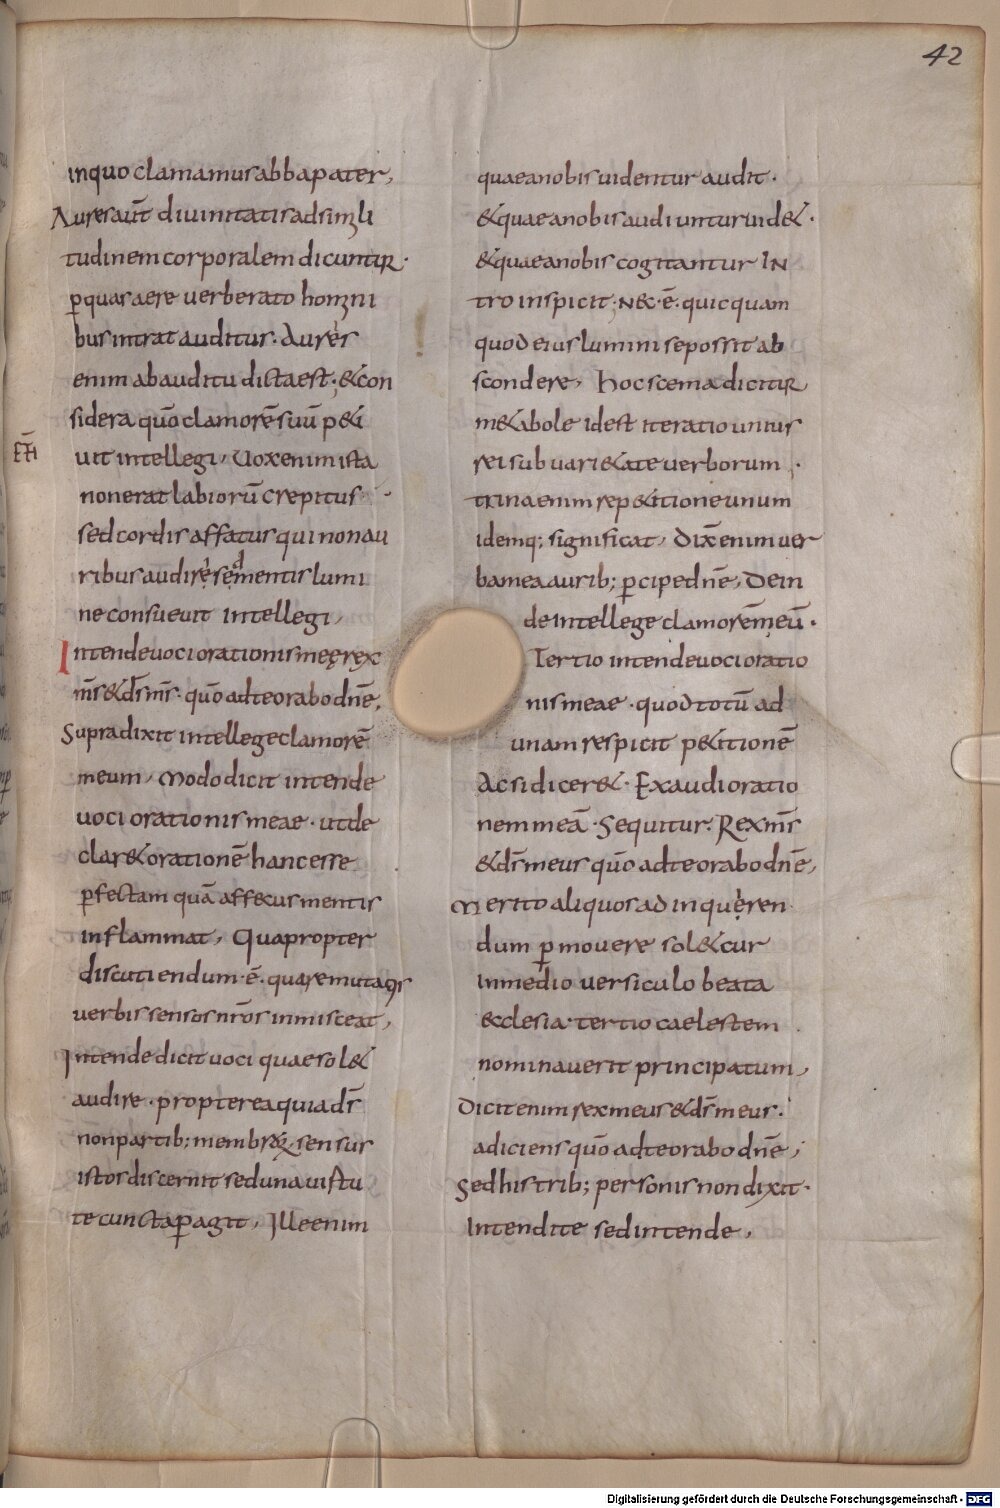 42
inquo clamamus abba pater,
Aures aut̄ divinitatis ad simili
tudinem corporalem dicuntur.
p̄ quas aere verberato homini
bus intrat auditus. Aures
enim ab auditu dicta est. & con
sidera quō clamorē suū p&i
EtI
vit intellegi, Vox enim ista
non erat labiorū crepitus
sed cordis affatus qui non au
ribus audire sed mentis lumi
ne consuevit intellegi,
Intende voci orationis meę rex
m̄s & ds̄ m̄s. quō ad te orabo dnē,
Supra dixit intellege clamorē
meum, modo dicit intende
voci orationis meae. ut de
clar& orationē hanc esse
p̄fectam quā affectus mentis
inflammat, Quapropter
discutiendum. ē. quare mutatis
verbis sensos nr̄os inmisceat,
Intende dicit voci quae sol&
audire. propterea quia ds̄
non partib; membrorum sensus
istos discernit sed una virtu
te cuncta p̄agit, Ille enim
quae a nobis videntur audit.
& quae a nobis audiuntur vid&.
& quae a nobis cogitantur IN
tro inspicit; Nec. ē. quicquam
quod eius lumini se possit ab
scondere, hoc scema dicitur
m&abole id est iteratio unius
rei sub vari&ate verborum,
trina enim rep&itione unum
idemq; significat, dix̄ enim ver
ba mea aurib; p̄cipe dnē, Dein
de intellege clamorē meū.
Tertio intende voci oratio
nis meae. quod totū ad
unam respicit p&itionē
Ac si dicer&. Exaudi oratio
nem meā. Sequitur. Rex m̄s
& ds̄ meus quō ad te orabo dnē,
Merito aliquos ad inquęren
dum p̄movere sol& cur
in medio versiculo beata
&clesia tertio caelestem
nominaverit principatum,
Dicit enim rex meus & ds̄ meus.
adiciens quō ad te orabo dnē;
Sed his trib; personis non dixit.
intendite sed intende,
Digitalisierung gefördert durch die Deutsche Forschungsgemeinschaft - DFG